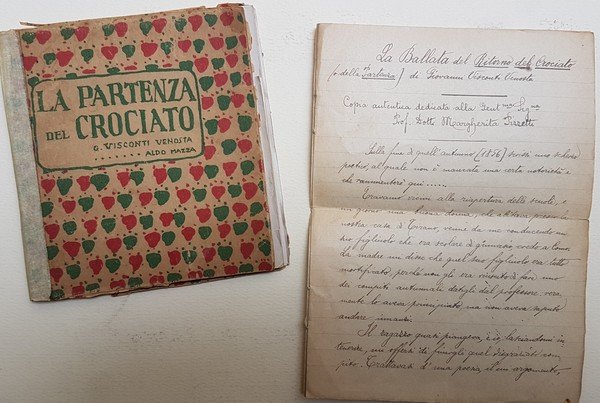 LA PARTENZA
DEL CROCIATO
G. VISCONTI VENOSTA
....... ALDO MAZZA
La Ballata del Ritorno del Crociato
(o della Partenza) di Giovanni Visconti Venosta
Copia autentica dedicata alla Gent.ma Sig.na
Prof. Dott. Margherita
Sulla fine di quell'autunno (1856) scrissi uno scherzo
poetico, al quale non è mancata una certa notorietà e
che rammenterò qui .....
Eravamo vicini alla riapertura delle scuole, e
un giorno una buona donna, che abitava presso la
nostra casa di Tirano, venne da me conducendo un
suo figliuolo che era scolare di ginnasio,
La madre mi disse che quel suo figliuolo era tutto
mortificato, perchè non gli era riuscito di fare uno
de' compiti autunnali datigli dal professore: vera-
mente lo aveva principiato, ma non aveva saputo
andare innanzi.
Il ragazzo quasi piangeva, e io, lasciandomi in-
tenerire, mi offersi di finirgli quel disgraziato com-
pito. Trattavasi d'una poesia, il cui argomento,